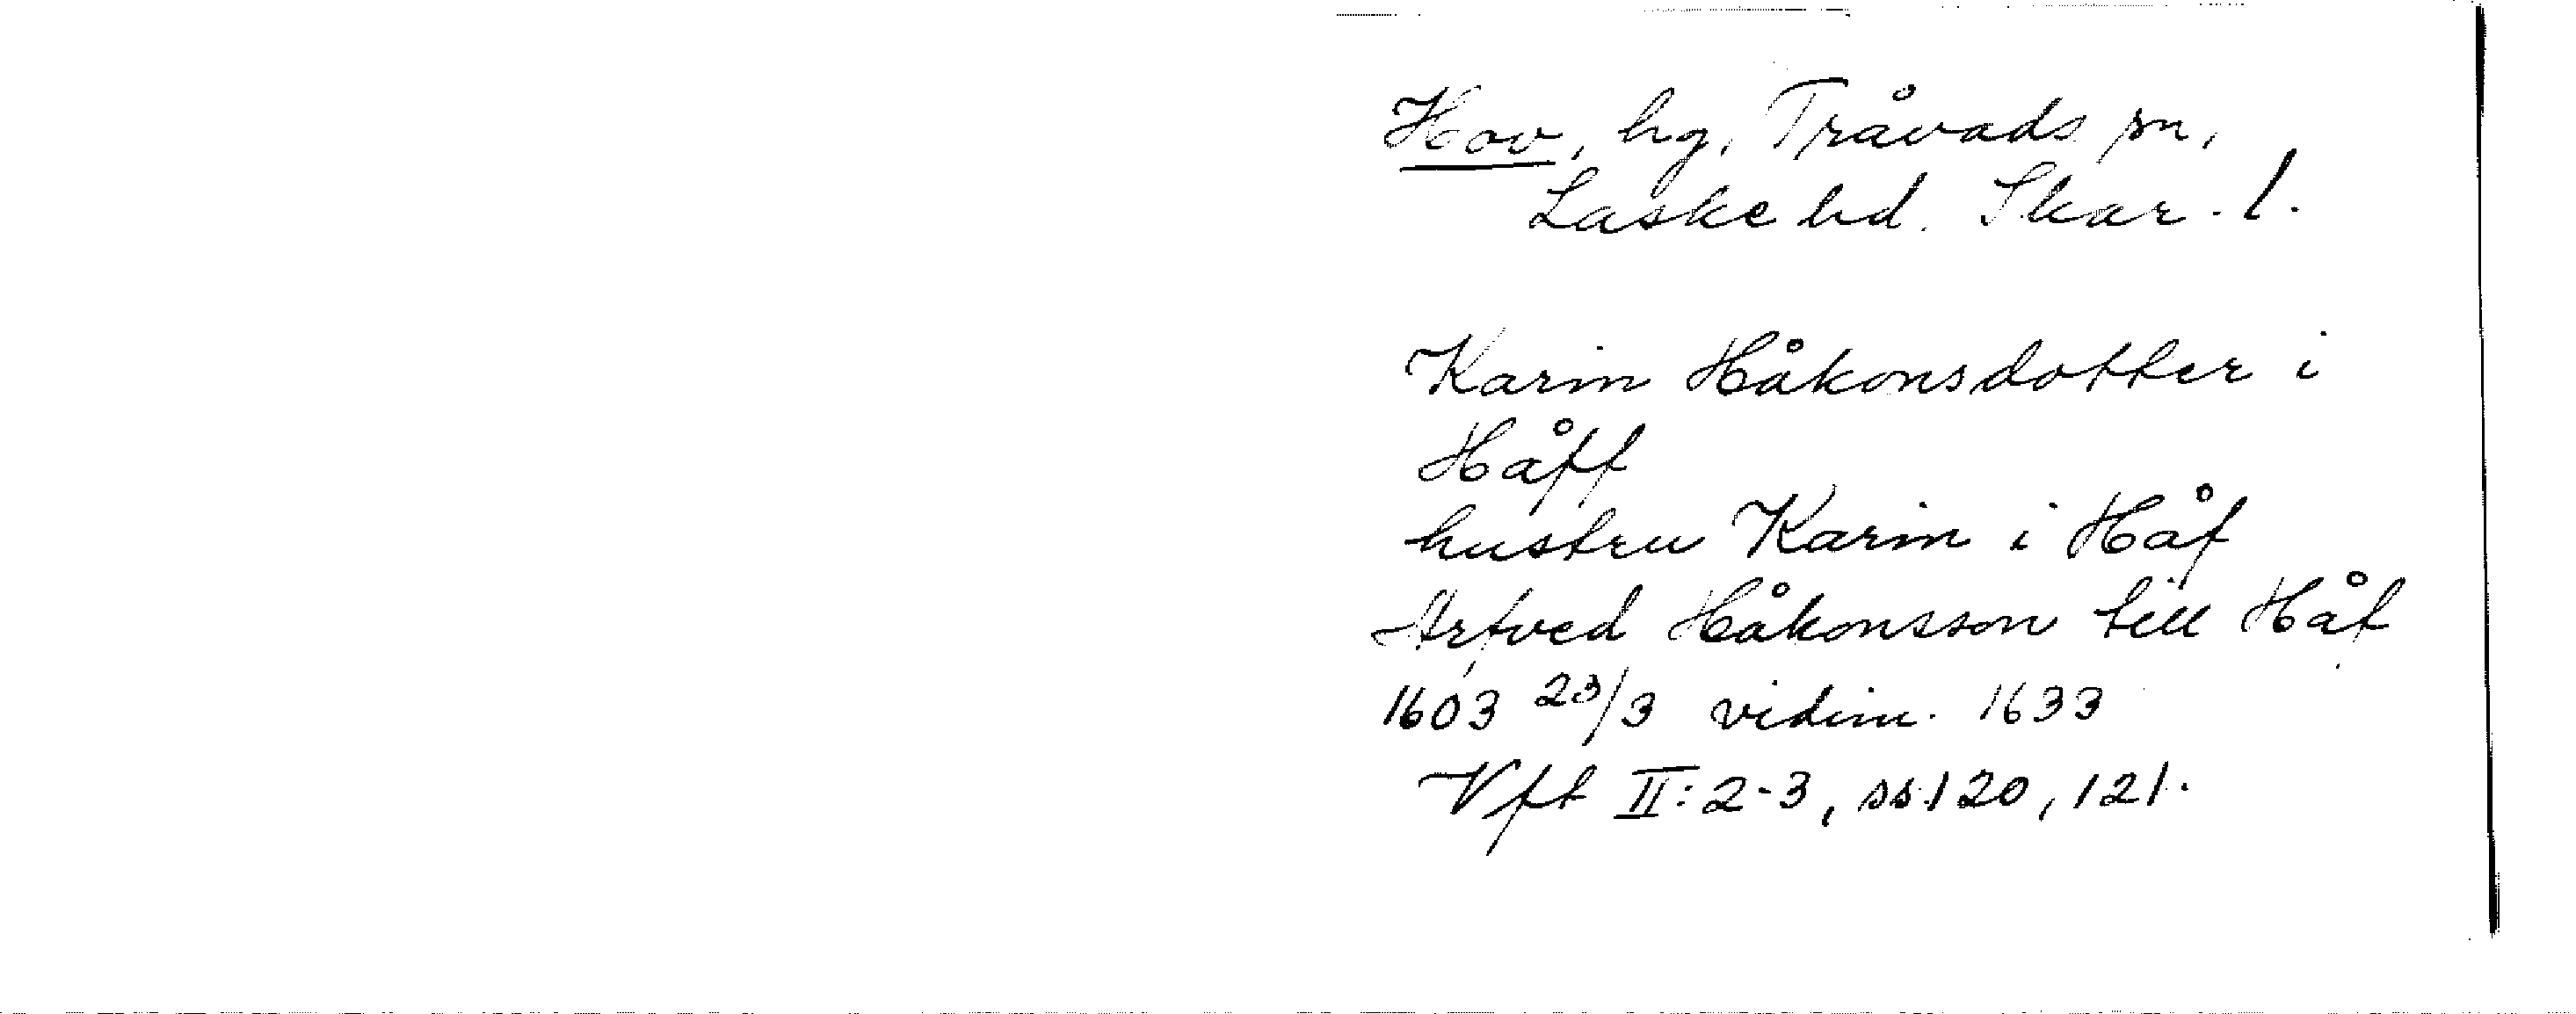 Hov, hg, Tråvads sn,
Laske hd. Skar. l.
Karin Håkonsdotter i
Håff
hustru Karin i Håf
Arfved Håkonsson till Håf
1603 23/3 vidim. 1633
Vft II: 2-3, ss. 120, 121.